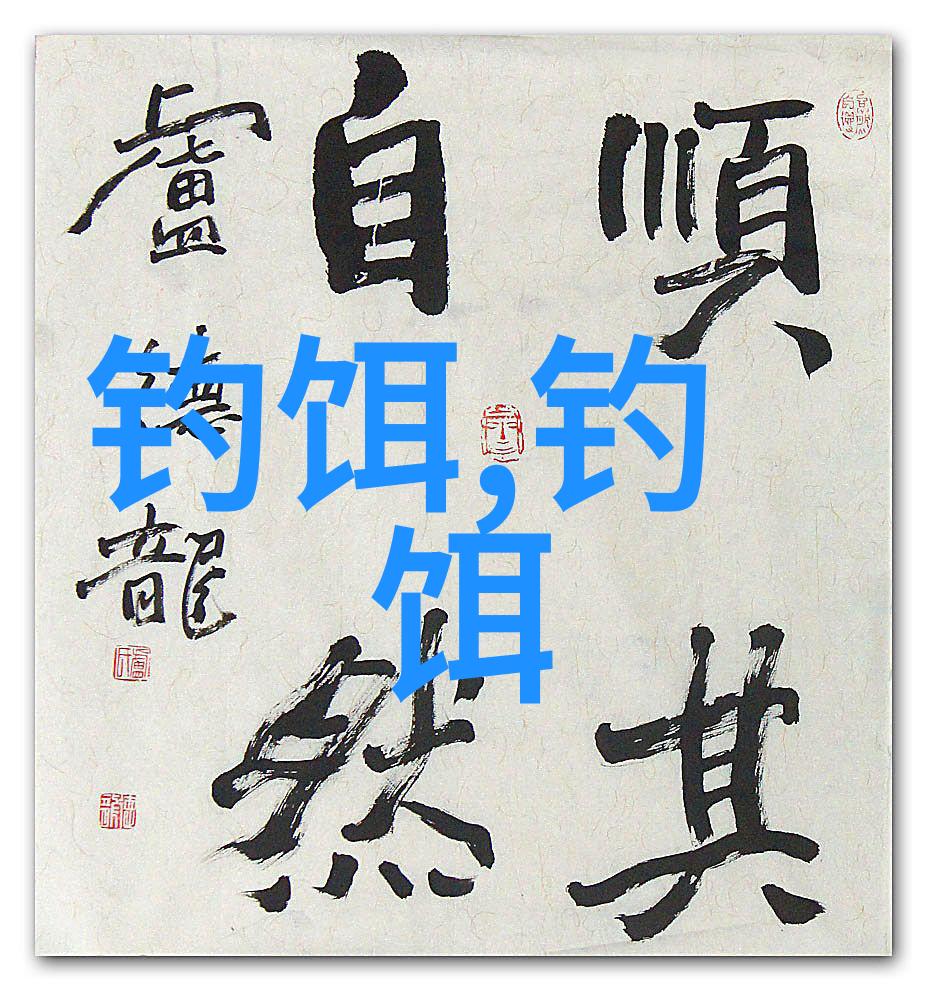 順其
自然
盧龍
钓饵,钓
饵